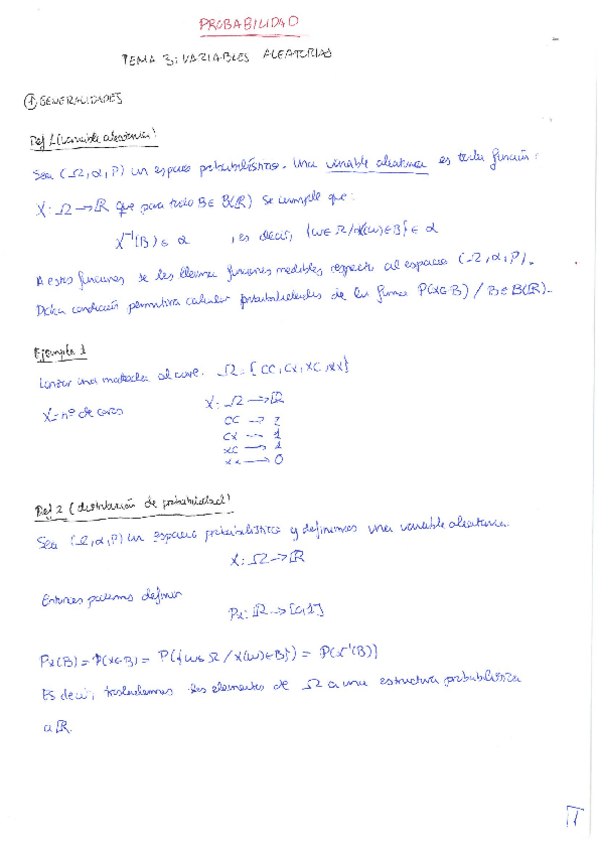 PROBABILIDAD
TEMA 3: VARIABLES ALEATORIAS
① GENERALIDADES
Def 1 (variable aleatoria)
Sea (Ω, α, P) un espacio probabilístico. Una variable aleatoria es toda función:
X: Ω → ℝ que para todo B ∈ B(ℝ) se cumple que:
X⁻¹(B) ∈ α , es decir, {w ∈ Ω / X(w) ∈ B} ∈ α
A estas funciones se les llama funciones medibles respecto al espacio (Ω, α, P).
Dicha condición permitirá calcular probabilidades de la forma P(X ∈ B) / B ∈ B(ℝ).
Ejemplo 1
Lanzar una moneda al aire. Ω = {CC, CX, XC, XX}
X = nº de caras
X: Ω → ℝ
CC → 2
CX → 1
XC → 1
XX → 0
Def 2 (distribución de probabilidad)
Sea (Ω, α, P) un espacio probabilístico y definimos una variable aleatoria
X: Ω → ℝ
Entonces podemos definir
Px: ℝ → [0,1]
Px(B) = P(X ∈ B) = P({w ∈ Ω / X(w) ∈ B}) = P(X⁻¹(B))
Es decir, trasladamos los elementos de Ω a una estructura probabilística
a ℝ.